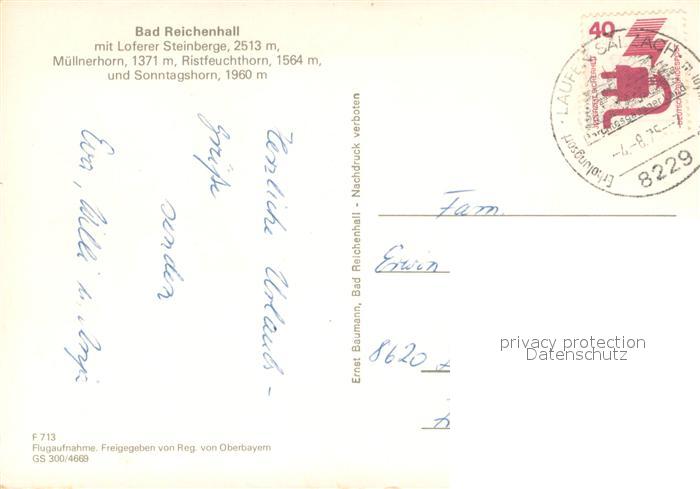 Bad Reichenhall
mit Loferer Steinberge, 2513 m,
Müllnerhorn, 1371 m, Ristfeuchthorn, 1564 m,
und Sonntagshorn, 1960 m
Herzliche Urlaubs-
grüße
senden
Eva, Willi u. Anja
F 713
Flugaufnahme. Freigegeben von Reg. von Oberbayern
GS 300/4669
Ernst Baumann, Bad Reichenhall - Nachdruck verboten
40
DEUTSCHE BUNDESPOST
LAUFEN, SALZACH
Erholungsort
8229
Fam.
Erwin
8620
privacy protection
Datenschutz